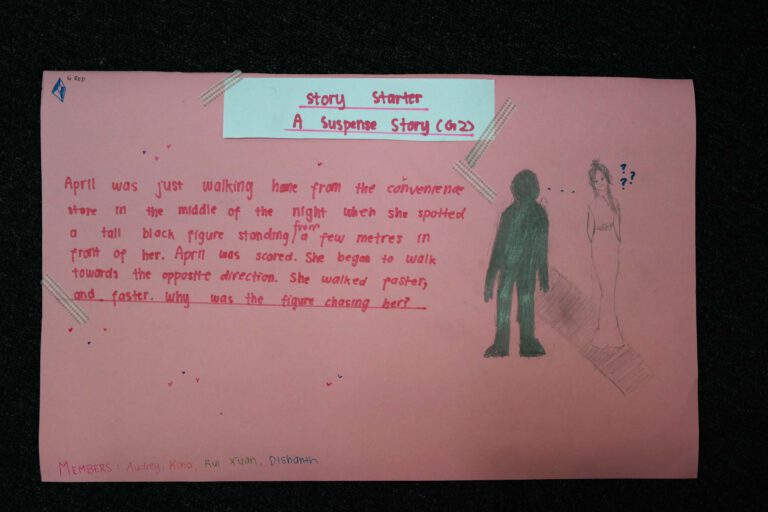 G RED
Story Starter
A Suspense Story (G2)
April was just walking home from the convenience
store in the middle of the night when she spotted
a tall black figure standing from a few metres in
front of her. April was scared. She began to walk
towards the opposite direction. She walked faster,
and faster. Why was the figure chasing her?
...
? ? ?
MEMBERS: Audrey, Kiho, Rui Xuan, Dishanth